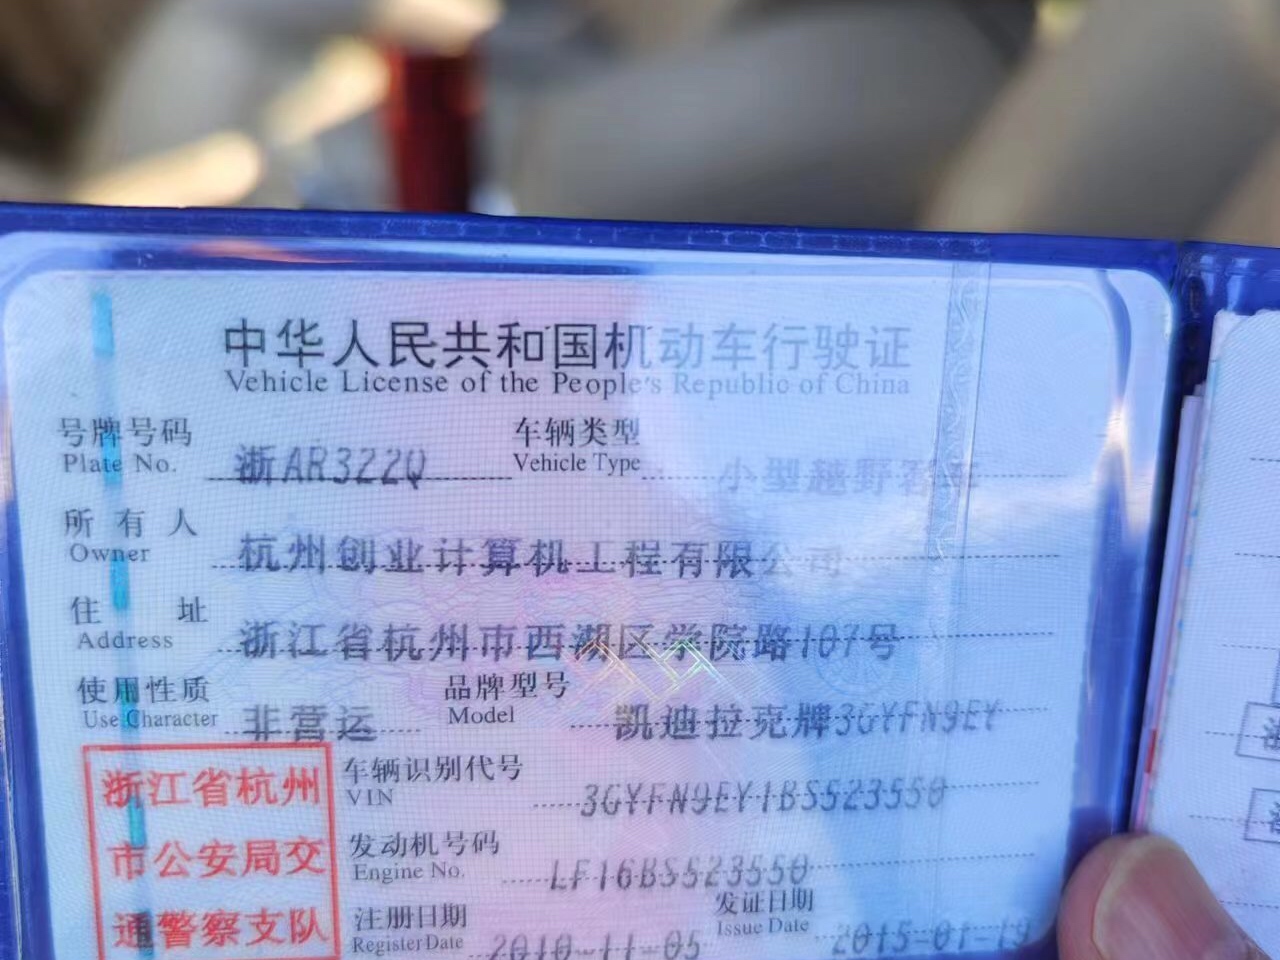 中华人民共和国机动车行驶证
Vehicle License of the People's Republic of China
号牌号码 浙AR322Q 车辆类型 小型越野客车
Plate No. Vehicle Type
所有人 杭州创业计算机工程有限公司
Owner
住址 浙江省杭州市西湖区学院路107号
Address
使用性质 非营运 品牌型号 凯迪拉克牌3GYFN9EY
Use Character Model
浙江省杭州
市公安局交
通警察支队
车辆识别代号 3GYFN9EY1BS523550
VIN
发动机号码 LF16BS523550
Engine No.
注册日期 2010-11-05 发证日期 2015-01-19
Register Date Issue Date